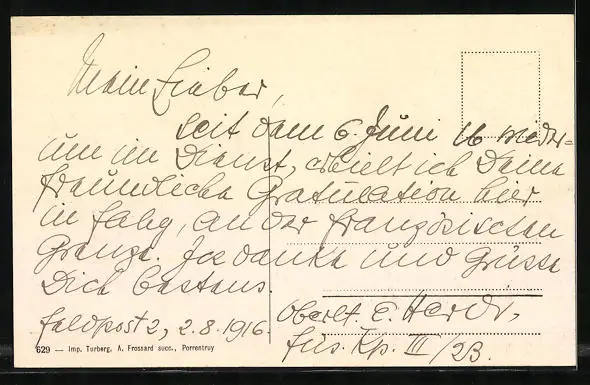 Mein Lieber,
seit dem 6. Juni 16 wieder=
um im Dienst, erhielt ich Deine
freundliche Gratulation hier
in Fahy, an der französischen
Grenze. Ich danke und grüsse
Dich bestens.
Feldpost 2, 2.8.1916.
Oberlt. E.
Füs. Kp. III/23.
629 — Imp. Turberg, A. Frossard succ., Porrentruy